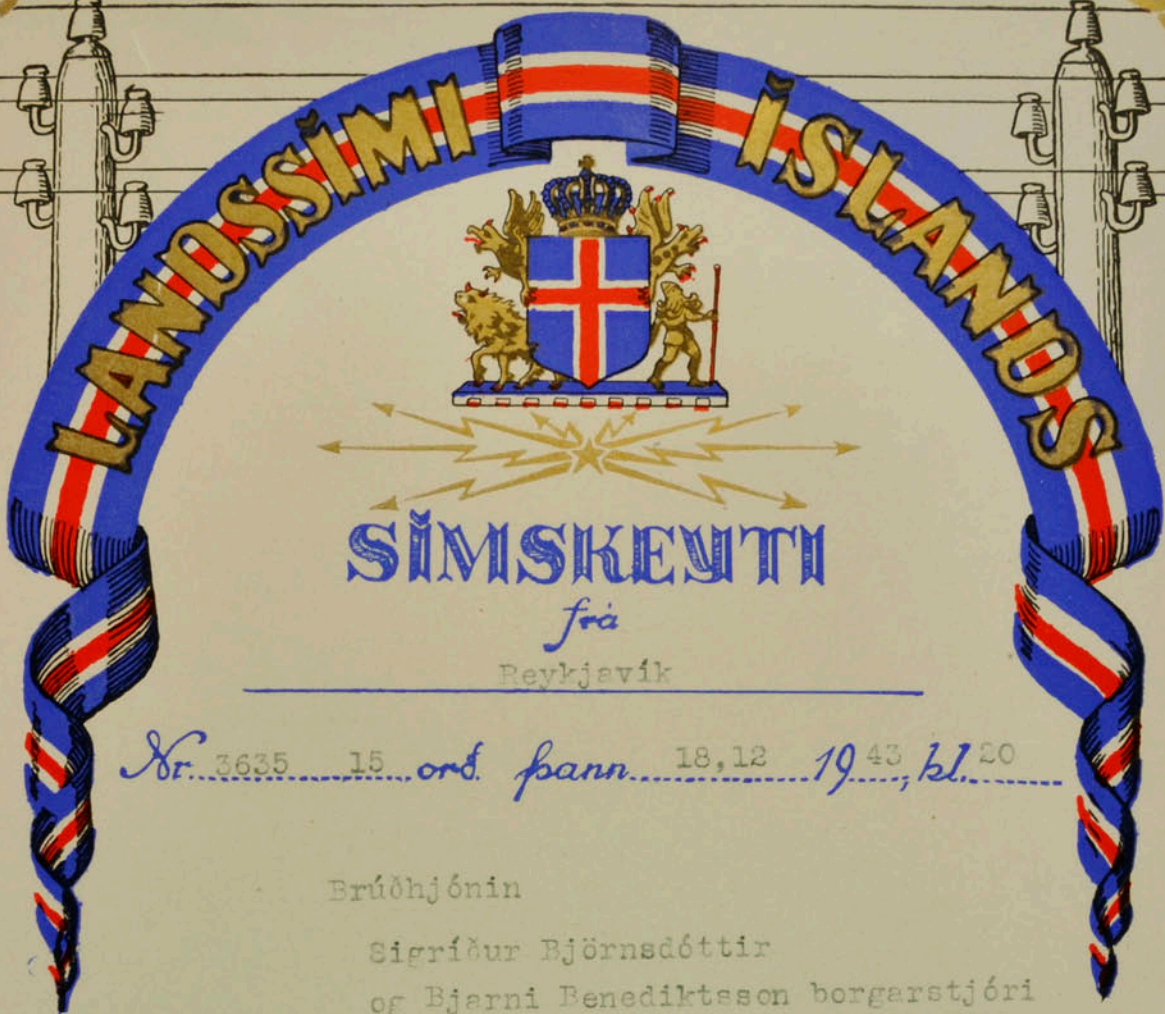 LANDSSÍMI ÍSLANDS
SÍMSKEYTI
frá
Reykjavík
Nr. 3635 15 orð þann 18,12 1943, kl. 20
Brúðhjónin
Sigríður Björnsdóttir
og Bjarni Benediktsson borgarstjóri